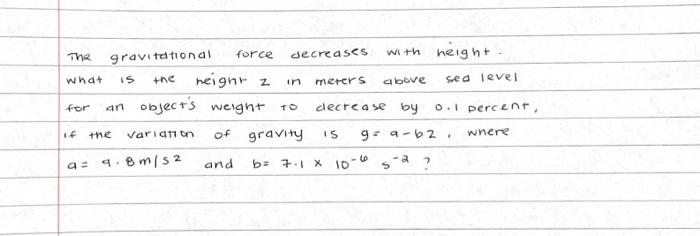 The gravitational force decreases with height.
what is the height z in meters above sea level
for an object's weight to decrease by 0.1 percent,
if the variation of gravity is g = a-bz, where
a = 9.8 m/s2 and b= 7.1 x 10-6 s-2 ?